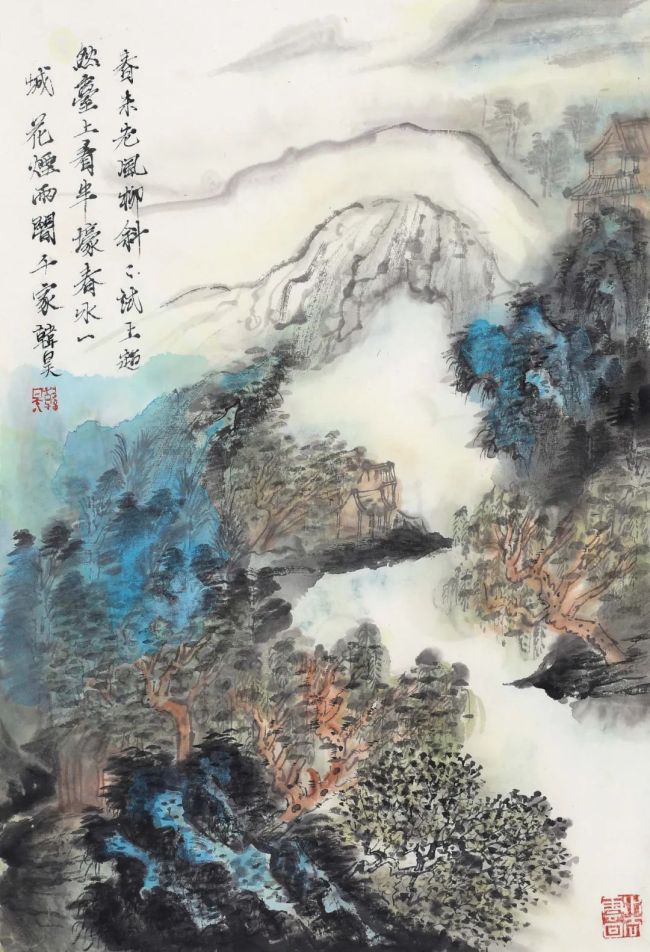 春未老風柳斜〻試上超
然臺上看半壕春水一
城花煙雨闇千家韓昊